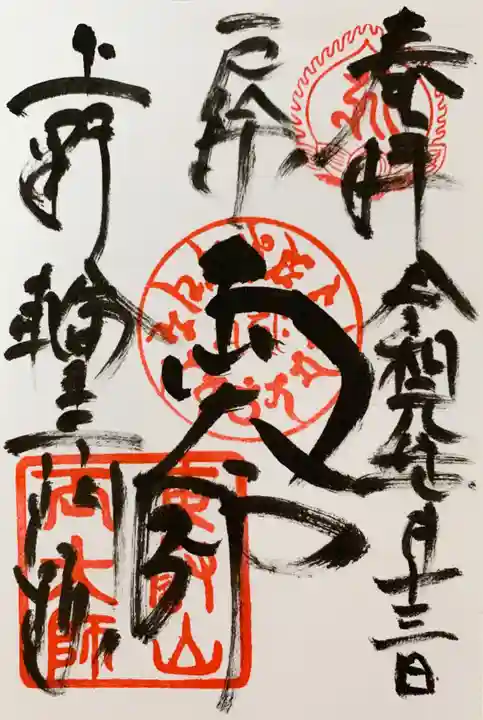 奉拝
令和元年七月十三日
両大師
上野
輪王寺門跡
東叡山
両大師